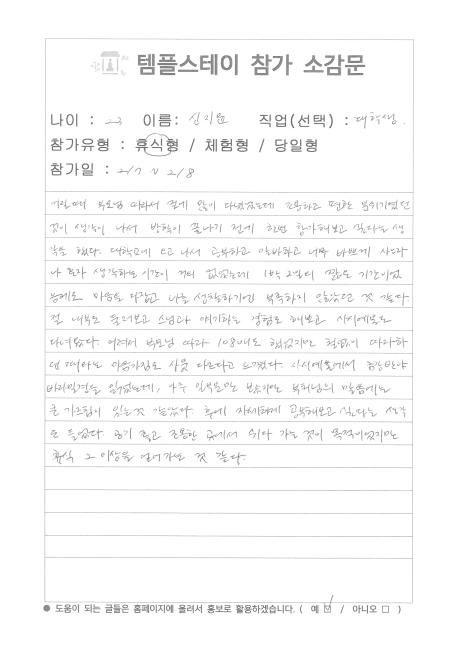 템플스테이 참가 소감문
나이 : 23 이름: 신지요 직업(선택) : 대학생.
참가유형 : 휴식형 / 체험형 / 당일형
참가일 : 2/7 ~ 2/8
어릴때 부모님 따라서 절에 많이 다녔었는데 고용하고 편한 분위기였던
것이 생각이 나서 방학이 끝나기 전에 한번 참가해보고 싶다는 생
각을 했다. 대학교에 오고 나서 공부하고 알바하고 너무 바쁘게 사느라
나 혼자 생각하는 시간이 거의 없었는데 1박 2일이 짧은 기간이었
음에도 마음을 다잡고 나를 성찰하기엔 부족하지 않았던 것 같다
절 내부도 둘러보고 스님과 얘기하는 경험도 해보고 사시예불도
다녀왔다 어려서 부모님 따라 108배도 했었지만 형식이 따라하
던 때와는 마음가짐도 사뭇 다르다고 느꼈다. 사시예불에서
반야심경을 읽었는데, 아주 일부분만 보았지만 부처님의 말씀에는
큰 가르침이 있는 것 같았다 후에 자세하게 공부해보고 싶다는 생각
도 들었다 공기 좋고 조용한 곳에서 쉬다 가는 것이 목적이었지만
휴식 그 이상을 얻어가는 것 같다.
● 도움이 되는 글들은 홈페이지에 올려서 홍보로 활용하겠습니다. ( 예 ☑ / 아니오 □ )